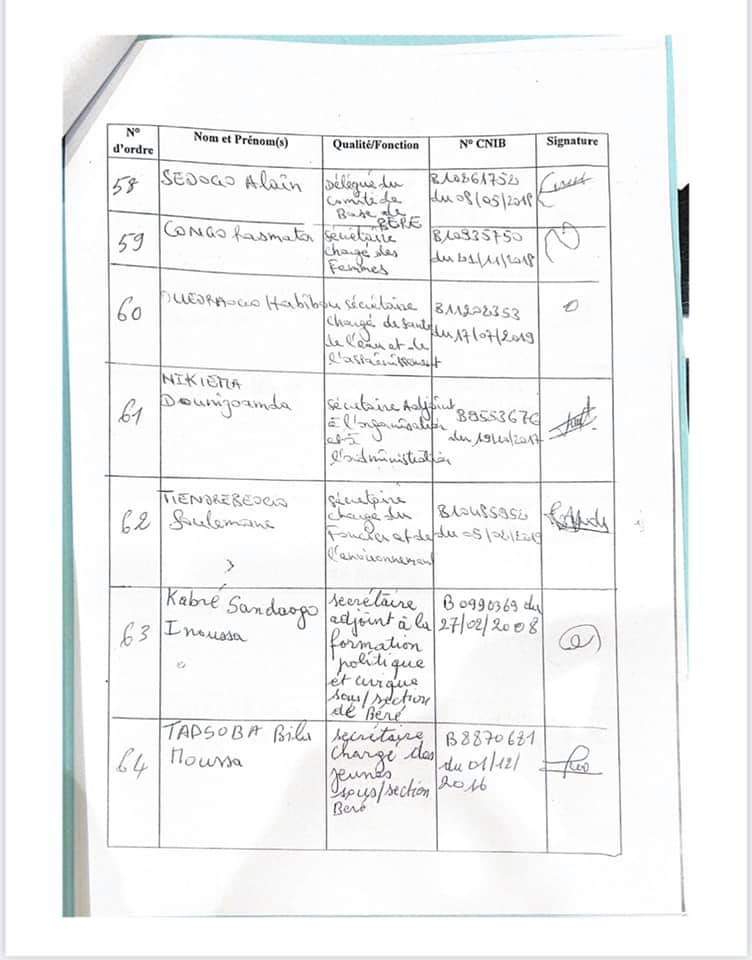 N° d'ordre
Nom et Prénom(s)
Qualité/Fonction
N° CNIB
Signature
58
SEDOGO Alain
Délégué du
Comité de
Base de
BERE
B10861752
du 08/05/2018
59
CONGO
sécrétaire
chargé des
Femmes
B10935750
du 01/11/2018
60
OUEDRAOGO Habibou
sécrétaire
chargé de santé
de l'eau et de
l'assainissement
B11202353
du 17/07/2019
61
NIKIEMA
sécretaire Adjoint
à l'organisation
et à
l'administration
B9553676
du
62
TIENDREBEOGO
Souleymane
sécretaire
chargé du
Foncier et de
l'environnement
du
63
Kabré Sandaogo
Inoussa
secrétaire
adjoint à la
formation
politique
et civique
sous/section
de Béré
B0990369 du
27/02/2008
64
TAPSOBA Bila
Moussa
secrétaire
chargé des
jeunes
sous/section
Beré
B8870681
du 01/12/
2016